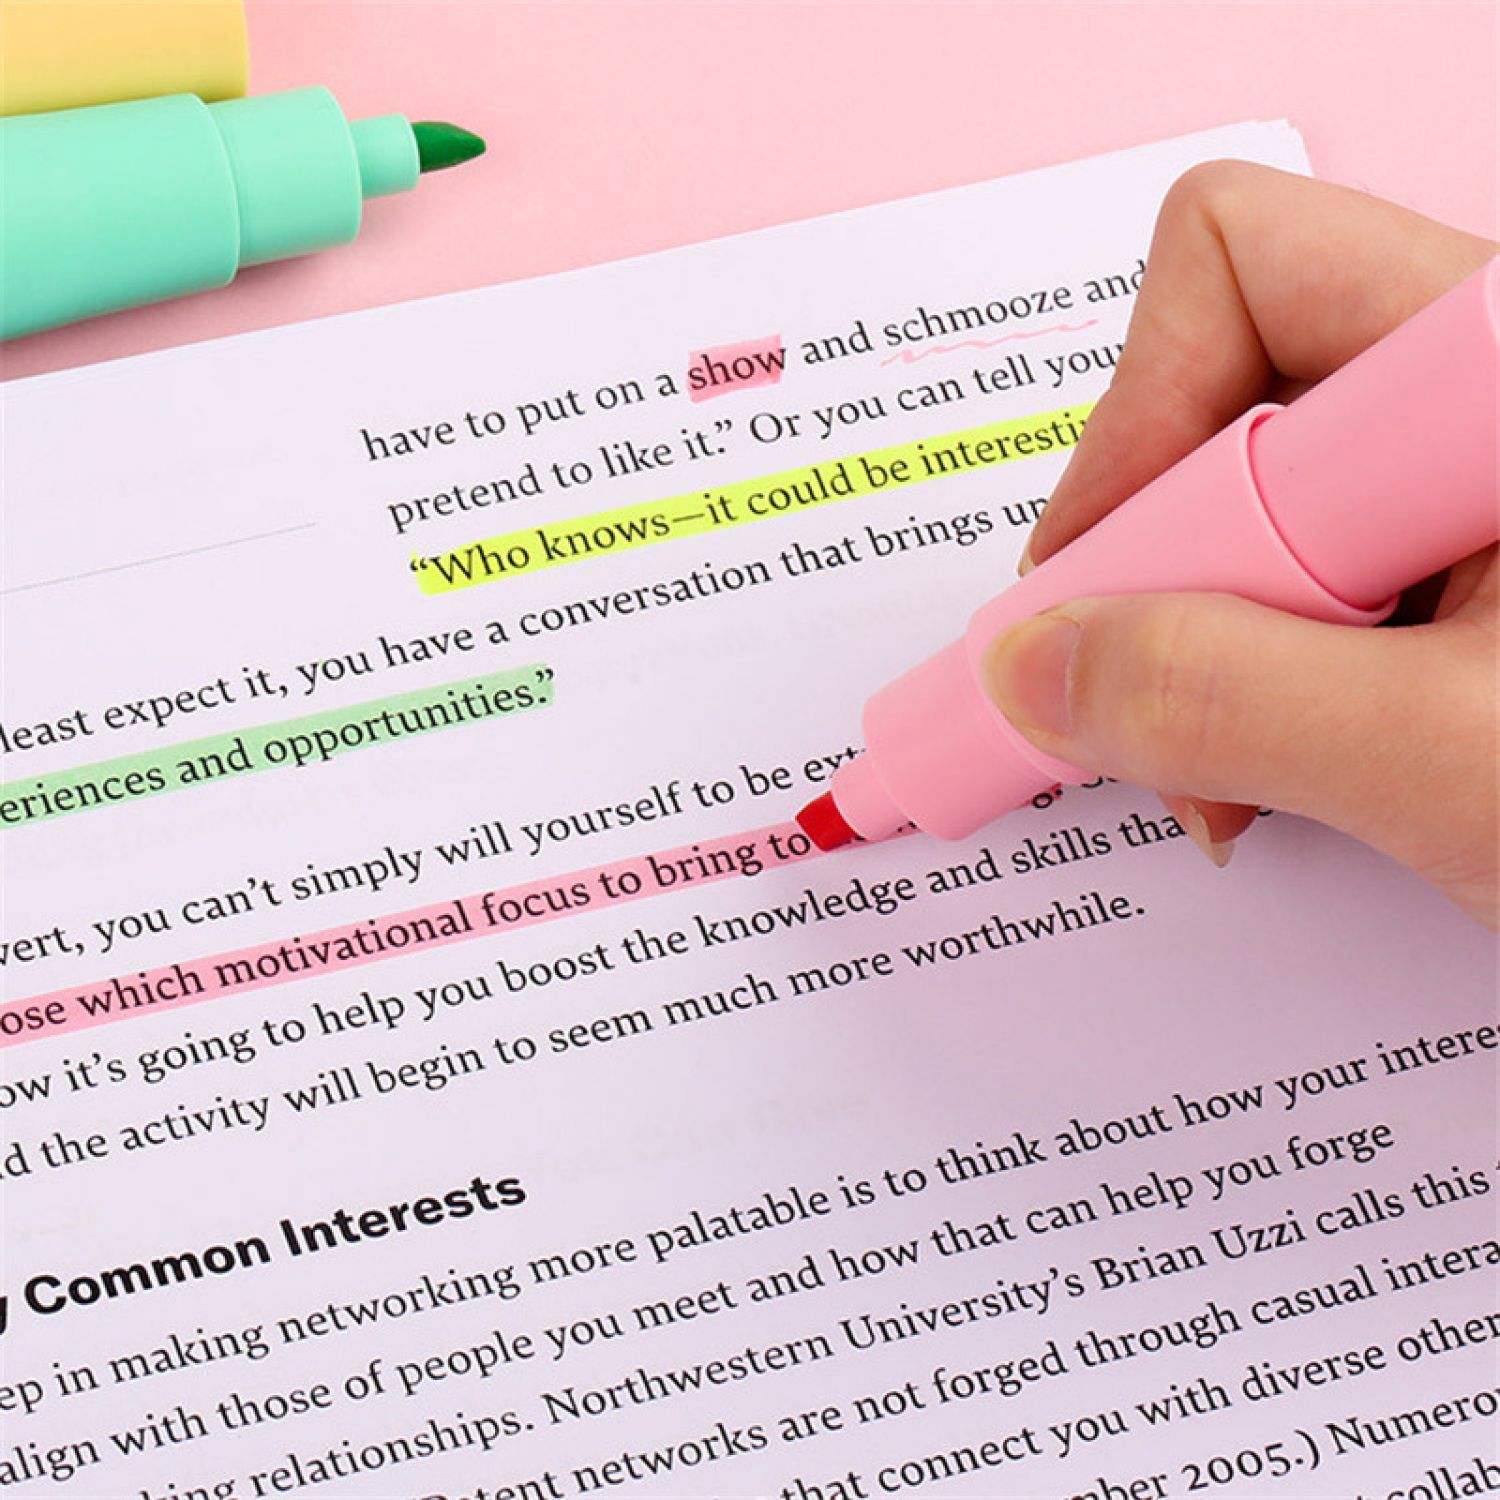 have to put on a show and schmooze and
pretend to like it.” Or you can tell your
“Who knows—it could be interesti
least expect it, you have a conversation that brings up
eriences and opportunities.”
vert, you can’t simply will yourself to be ext
ose which motivational focus to bring to
ow it’s going to help you boost the knowledge and skills tha
d the activity will begin to seem much more worthwhile.
y Common Interests
ep in making networking more palatable is to think about how your interes
align with those of people you meet and how that can help you forge
king relationships. Northwestern University’s Brian Uzzi calls this
Potent networks are not forged through casual intera
that connect you with diverse other
mber 2005.) Numero
collab